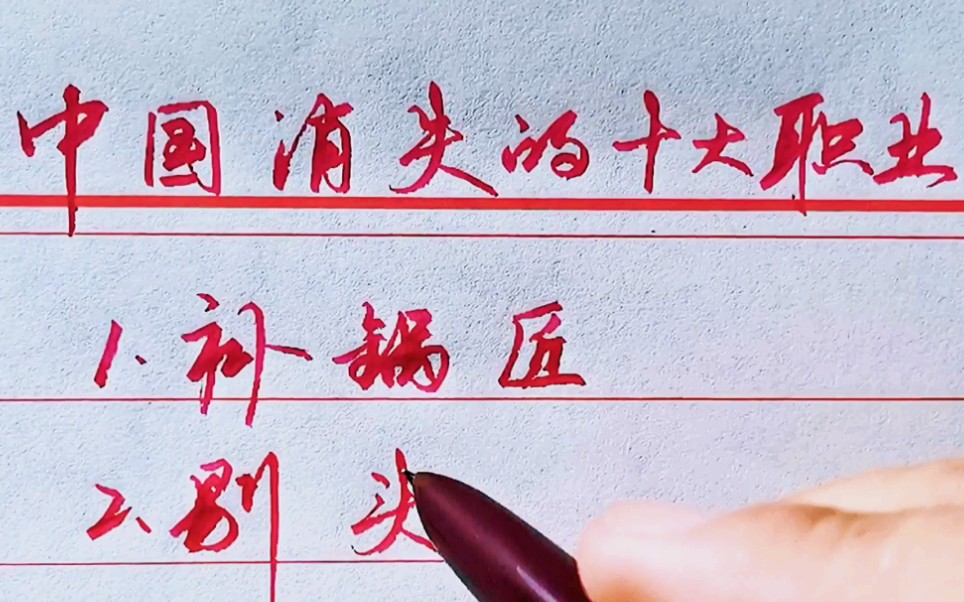 中国消失的十大职业
1.补锅匠
2、剔头